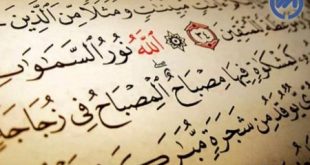 مُّبَيِّنَٰتٍ وَمَثَلًا مِّنَ ٱلَّذِينَ
٣٤ ۞ ٱللَّهُ نُورُ ٱلسَّمَٰوَٰتِ
كَمِشْكَوٰةٍ فِيهَا مِصْبَاحٌ ٱلْمِصْبَاحُ فِى زُجَاجَةٍ
يُوقَدُ مِن شَجَرَةٍ